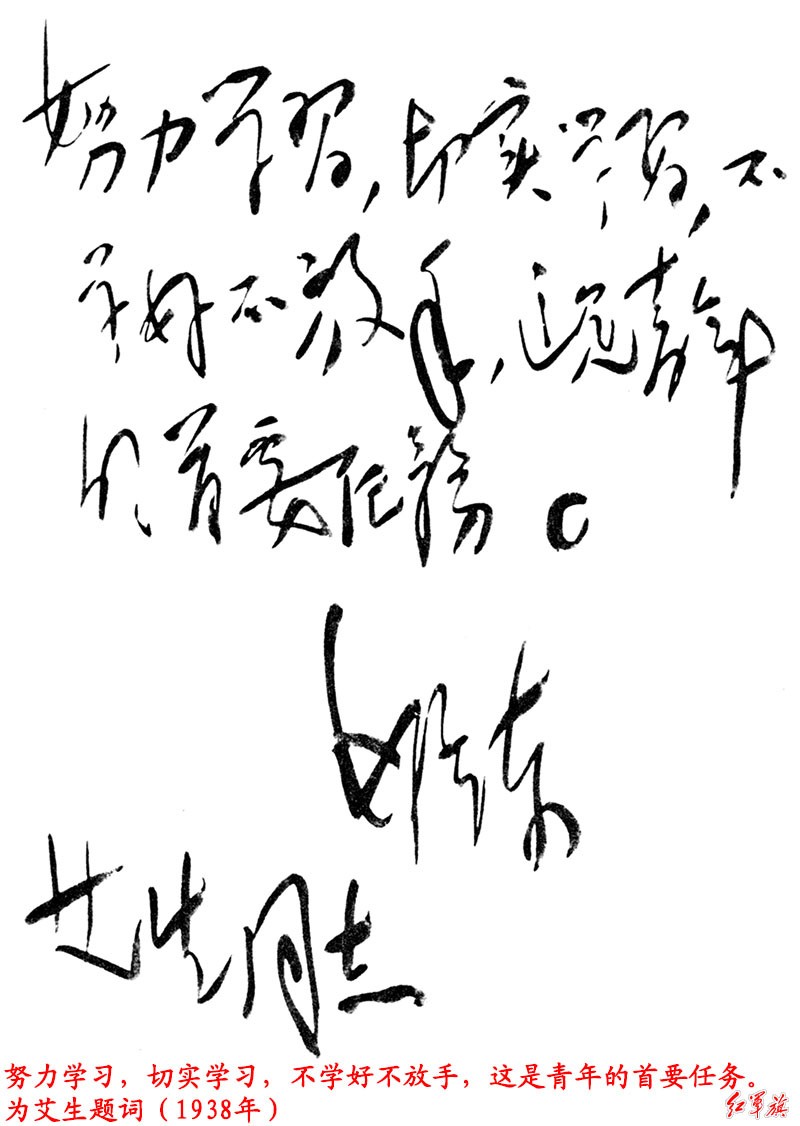 努力学习,切实学习,不
学好不放手,这是青年
的首要任务。
艾生同志
努力学习，切实学习，不学好不放手，这是青年的首要任务。
为艾生题词（1938年）
红军旗